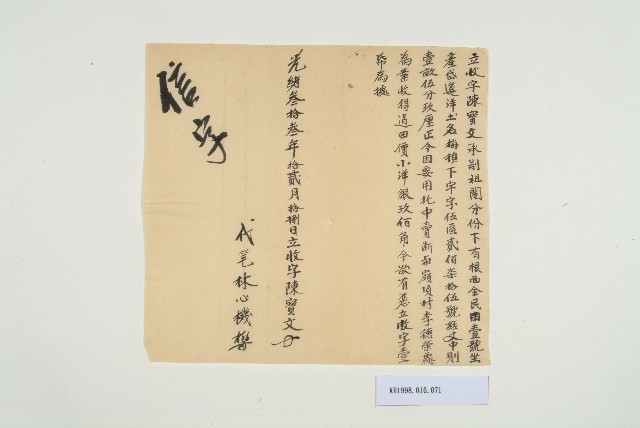 立收字陳寶文承副祖鬮分份下有根面全民田壹號坐
產岱邊洋土名梅樵下字字伍區貳佰柒拾伍號經丈中則
壹畝伍分玖厘正今因要用托中賣断嶺頂村李德榮處
為業收得過田價小洋銀玖佰角今欲有憑立收字壹
帋為據
光緒叁拾叁年拾貳月拾捌日立收字陳寶文
代笔林心機
信字
KH1998.016.071